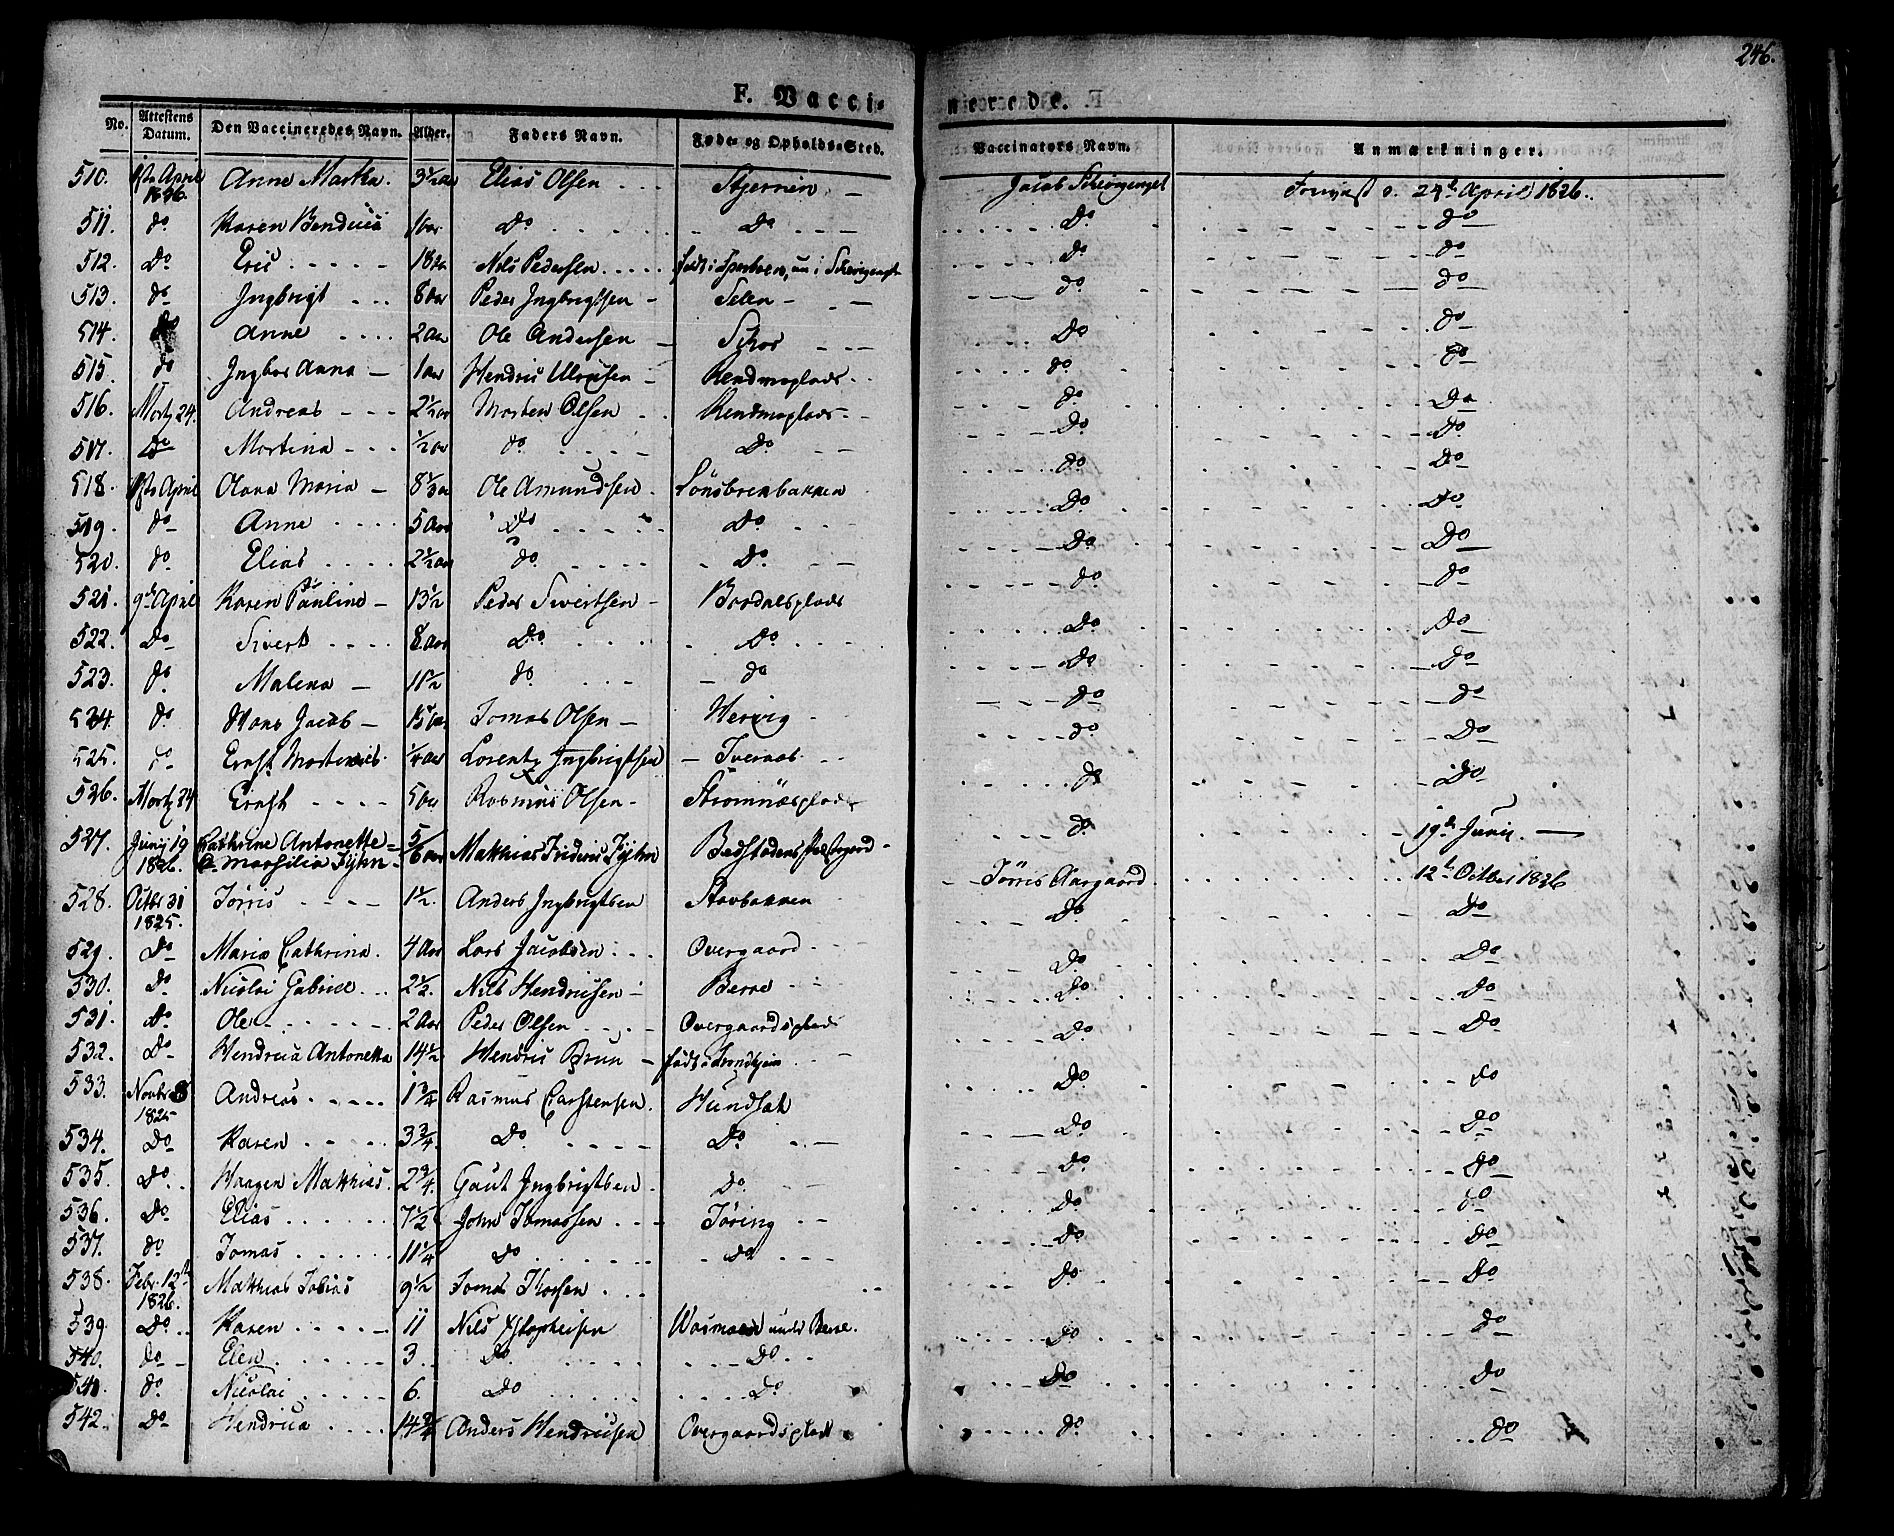 246.
F. Vaccinerede.
No. | Attestens Datum. | Den Vaccineredes Navn. | Alder. | Faders Navn. | Føde- og Opholds-Sted. | Vaccinators Navn. | Anmærkninger.
510. | April 1826 | Anne Martha. | 3 1/2 aar | Elias Olsen | | Jacob | 24de April 1826.
511. | do | Karen | 1 aar | Do | Do | Do | do
512. | Do | Eric | 18 aar | Nils Pedersen | født i | do | do
513. | do | Ingbrigt | 8 aar | Peder Ingbrigtsen | Selen | do | do
514. | do | Anne | 2 aar | Ole Andersen | | Do | do
515. | do | Ingbor Anna | 1 aar | Hendric Ulricsen | Rendmoplads | do | do
516. | Martz 24. | Andreas | 2 1/2 aar | Morten Olsen | Rendmoplads | do | Do
517. | Do | Mortina | 1/2 aar | do | Do | Do | Do
518. | April | Olava Maria | 8 1/3 a | Ole Amundsen | | do | Do
519. | do | Anne | 5 Aar | Do | Do | Do | Do
520. | do | Elias | 2 1/2 aar | do | Do | Do | Do
521. | 9de April | Karen Pauline | 13 1/2 | Peder Sivertsen | Bordalsplads | do | do
522. | Do | Sivert | 8 aar | Do | Do | Do | Do
523. | do | Malena | 11 1/2 | do | do | Do | do
524 | do | Hans Jacob | | Tomas Olsen | Hervig | do | do
525. | do | Ernst | 1/4 aar | Lorentz Ingbrigtsen | | do | Do
526. | Martz 24 | Ernst | 5 aar | Rasmus Olsen | Strømnæsplads | do | Do
527. | Junij 19 1826. | Cathrine Antonette Marsilia | 5/6 aar | Mathias | | do | 19de Junij.
528. | Octbr 31 1825. | Jørris | 1 1/2. | Anders Ingbrigtsen | Stavbakken | Jørris Aargaard | 12te October 1826
529. | Do | Maria Cathrina. | 4 Aar | Lars Jacobsen | Overgaard | Do | Do
530. | Do | Nicolai Gabriel | 2 1/2. | Nils Hendricsen | Berre | Do | Do
531. | Do | Ole | 2 Aar | Peder Olsen | Overgaardsplads | Do | Do
532. | Do | Hendrica Antonetta | 14 1/2 | Hendric Brun | født i Trondhjem | Do | Do
533. | Novbr 8 1825 | Andreas | 1 3/4 | Rasmus Carstensen. | Hundsat | Do | do
534. | Do | Karen | 3 3/4. | Do | Do | Do | Do
535. | Do | Haagen Mathias. | 2 3/4. | Gaut Ingbrigtsen | Do | Do | do
536. | Do | Elias | 7 1/2 | John Tomassen | Jøring | Do | do
537. | do | Tomas | 11 1/4 | Do | do | Do | Do
538. | Febr. 12te 1826. | Mathias Tobias | 9 1/2 | Tomas | | Do | Do
539 | Do | Karen | 11 | Nils | under Berre. | Do | do
540. | do | Elen | 3 | Do | Do | Do | Do
541. | do | Nicolai | 6. | Do | Do | Do | Do
542. | Do | Hendrica | 14 3/4 | Anders Hendricsen | Overgaardsplads | do | do